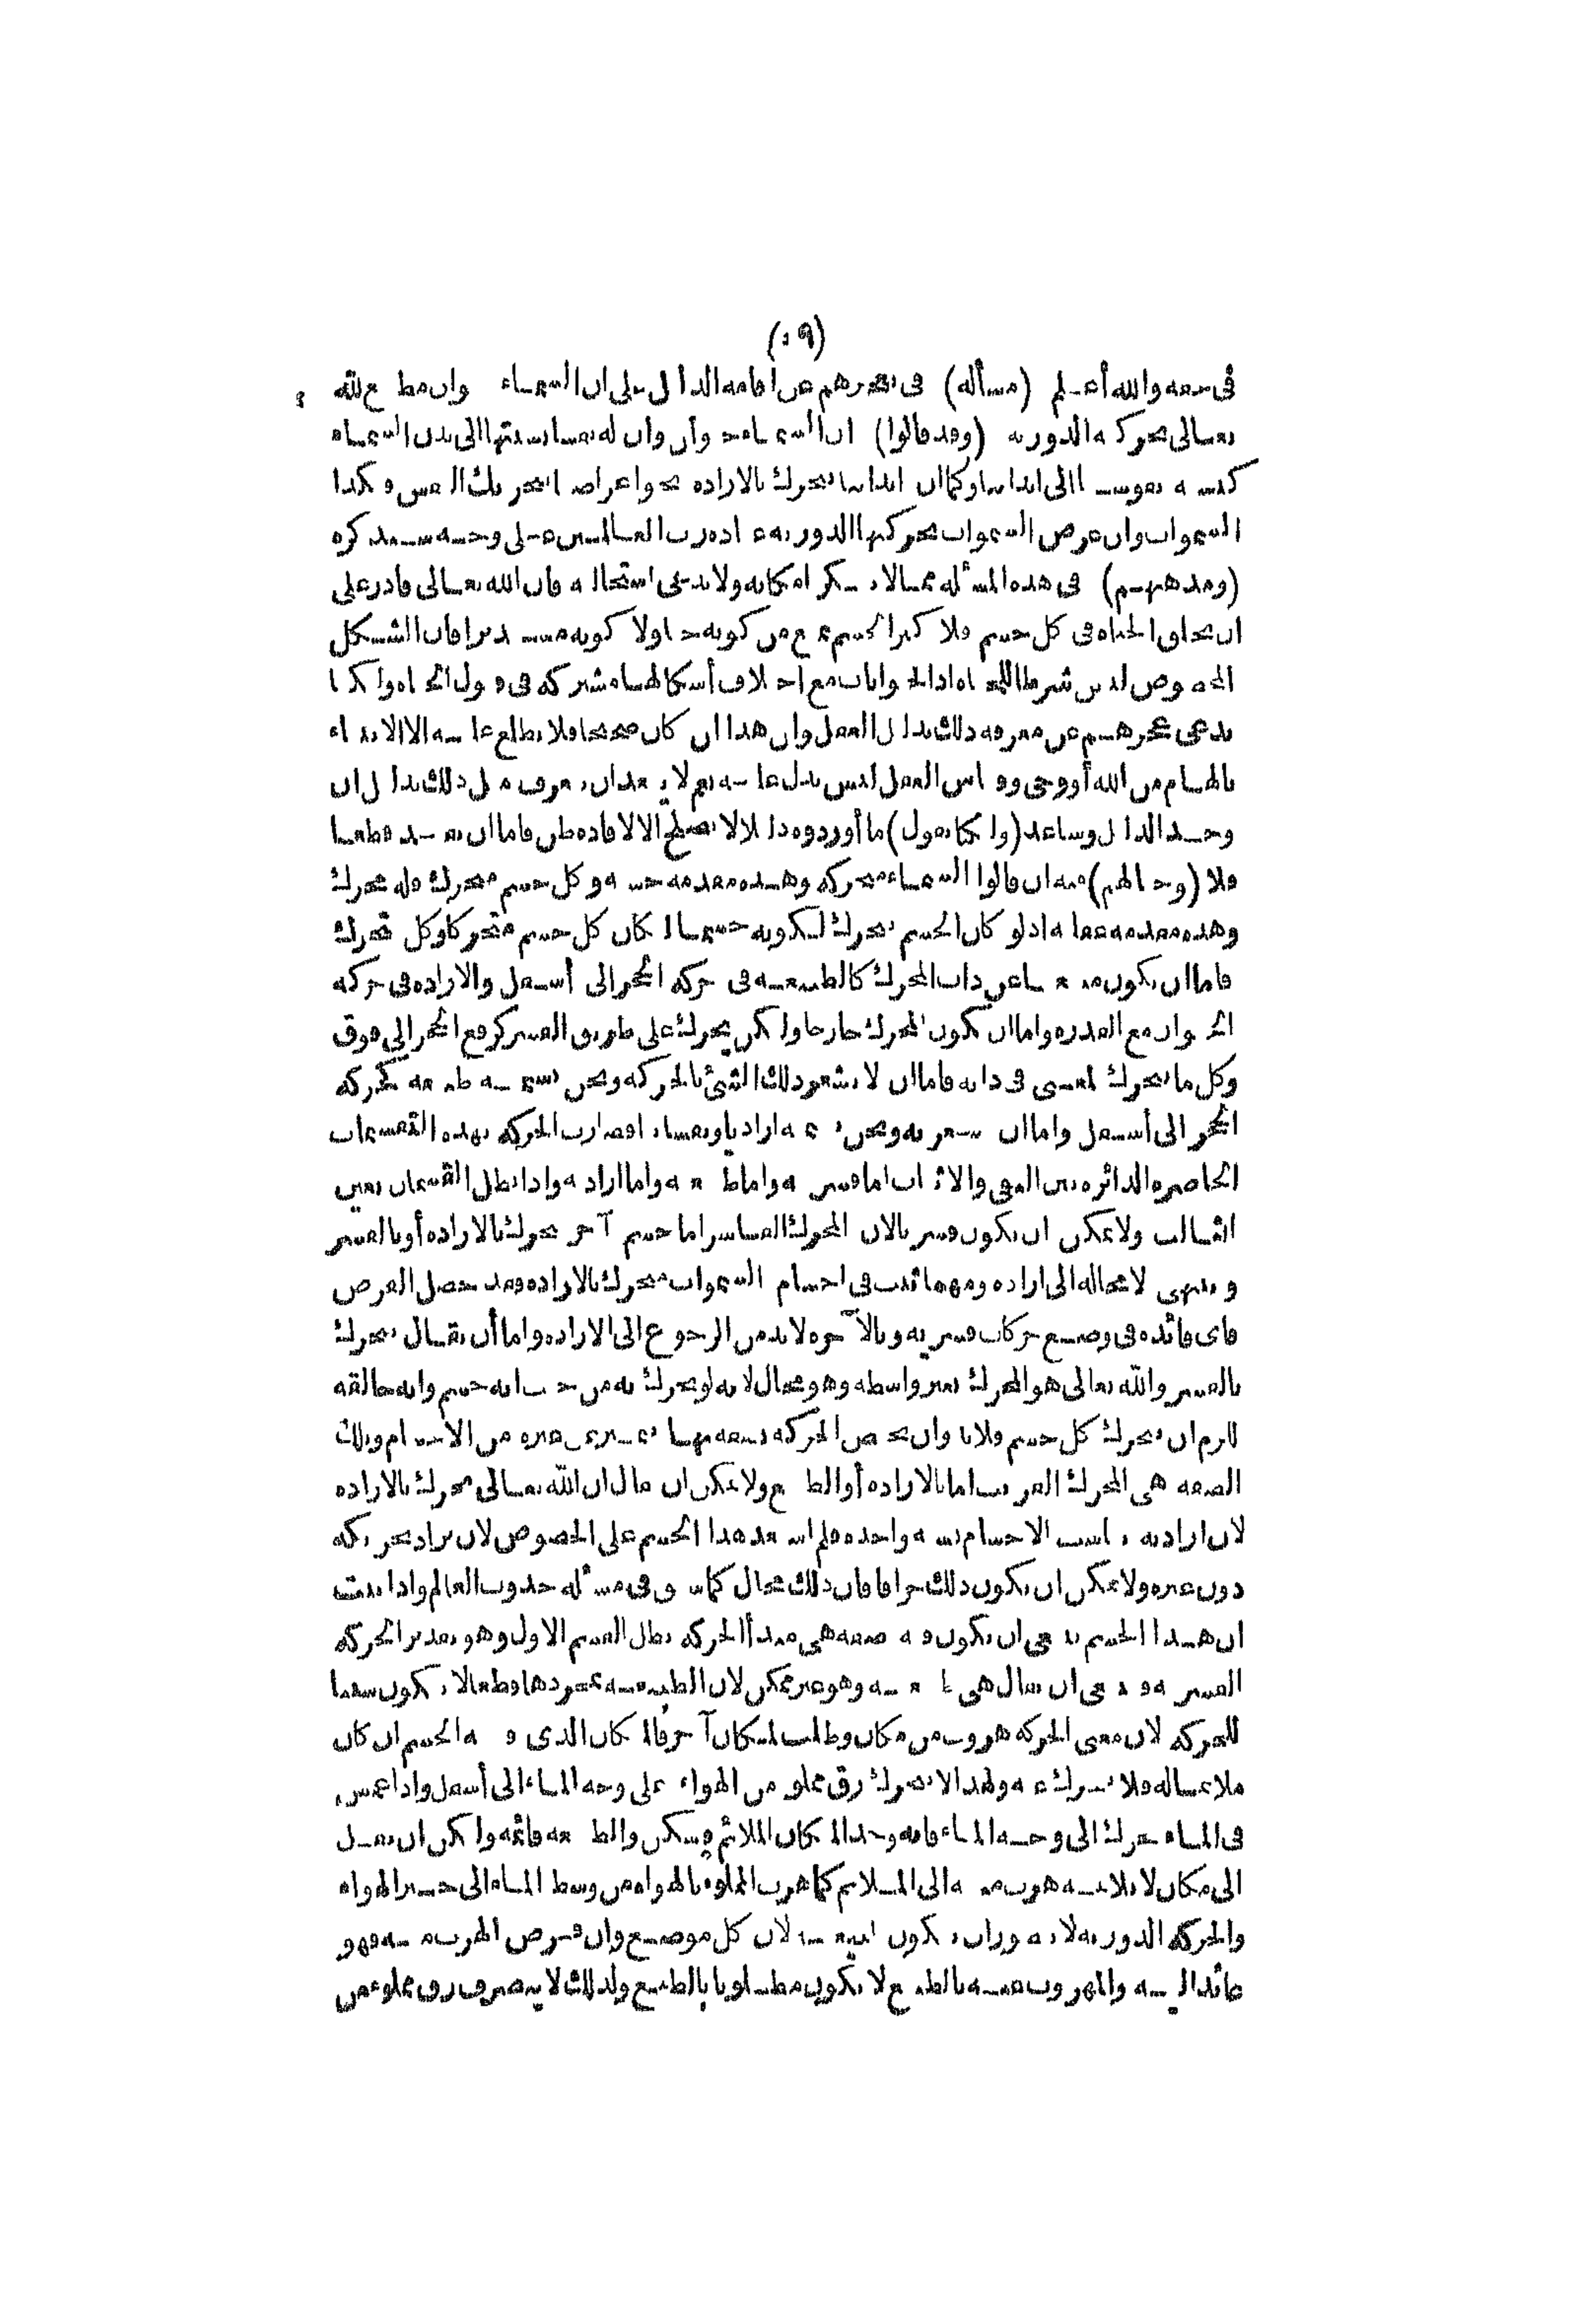 (٥٩)
في حقه والله أعلم (مسألة) في تعجيزهم عن اقامة الدليل على ان السماء حيوان مطيع لله
تعالى بحركته الدورية (وقد قالوا) ان السماء حيوان وان له نفسا نسبتها الى بدن السماء
كنسبة نفوسنا الى ابداننا وكما ان ابداننا تتحرك بالارادة نحو اغراضها بتحريك النفس فكذا
السموات وان غرض السموات بحركتها الدورية عبادة رب العالمين على وجه سنذكره
(ومذهبهم) في هذه المسألة مما لا ينكر امكانه ولا يدعى استحالته فان الله تعالى قادر على
ان يخلق الحياة في كل جسم فلا كبر الجسم يمنع من كونه حيا ولا كونه مستديرا فان الشكل
المخصوص ليس شرطا للحياة اذ الحيوانات مع اختلاف أشكالها مشتركة في قبول الحياة ولكنا
ندعى عجزهم عن معرفة ذلك بدليل العقل وان هذا ان كان صحيحا فلا يطلع عليه الا الانبياء
بالهام من الله أو وحي وقياس العقل ليس يدل عليه نعم لا يبعد ان يتعرف مثل ذلك بدليل ان
وجد الدليل وساعد (ولكنا نقول) ما أوردوه دليلا لا يصلح الا لافادة ظن فاما ان يفيد قطعا
فلا (وخيالهم) فيه ان قالوا السماء متحركة وهذه مقدمة حسية وكل جسم متحرك فله محرك
وهذه مقدمة عقلية اذ لو كان الجسم يتحرك لكونه جسما لكان كل جسم متحركا وكل محرك
فاما ان يكون منبعثا عن ذات المحرك كالطبيعة في حركة الحجر الى أسفل والارادة في حركة
الحيوان مع القدرة واما ان يكون المحرك خارجا ولكن يحرك على طريق القسر كرفع الحجر الى فوق
وكل ما يتحرك لمعنى في ذاته فاما ان لا يشعر ذلك الشئ بالحركة ونحن نسميه طبيعة كحركة
الحجر الى أسفل واما ان يشعر به ونحن نسميه اراديا ونفسانيا فصارت الحركة بهذه التقسيمات
الحاصرة الدائرة بين النفي والاثبات اما قسرية واما طبيعية واما ارادية واذا بطل القسمان تعين
الثالث ولا يمكن ان يكون قسريا لان المحرك القاسر اما جسم آخر يتحرك بالارادة أو بالقسر
وينتهي لا محالة الى ارادة ومهما ثبت في اجسام السموات متحرك بالارادة فقد حصل الغرض
فاى فائدة في وضع حركات قسرية وبالآخرة لا بد من الرجوع الى الارادة واما أن يقال يتحرك
بالقسر والله تعالى هو المحرك بغير واسطة وهو محال لانه لو تحرك به من حيث انه جسم وانه خالقه
للزم ان يتحرك كل جسم فلا بد وان تختص الحركة بصفة بها يتميز عن غيره من الاجسام وتلك
الصفة هي المحرك القريب اما بالارادة أو الطبع ولا يمكن ان يقال ان الله تعالى يحرك بالارادة
لان ارادته تناسب الاجسام نسبة واحدة فلم استعد هذا الجسم على الخصوص لان يراد تحريكه
دون غيره ولا يمكن ان يكون ذلك جزافا فان ذلك محال كما سبق في مسألة حدوث العالم واذا ثبت
ان هذا الجسم ينبغي ان يكون فيه صفة هي مبدأ الحركة بطل القسم الاول وهو تقدير الحركة
القسرية فيبقى ان يقال هي طبيعية وهو غير ممكن لان الطبيعة بمجردها قط لا تكون سببا
للحركة لان معنى الحركة هروب من مكان وطلب لمكان آخر فالمكان الذى فيه الجسم ان كان
ملائما له فلا يتحرك عنه ولهذا لا يتحرك زق مملو من الهواء على وجه الماء الى أسفل واذا غمس
في الماء تحرك الى وجه الماء فانه وجد المكان الملائم فسكن والطبيعة قائمة ولكن ان نقل
الى مكان لا يلائمه هرب منه الى الملائم كما هرب المملوء بالهواء من وسط الماء الى حيز الهواء
والحركة الدورية لا يتصور ان تكون طبيعية لان كل موضع وأين فرض الهرب منه فهو
عائد اليه والمهروب عنه بالطبع لا يكون مطلوبا بالطبع ولذلك لا ينصرف زق مملوء من